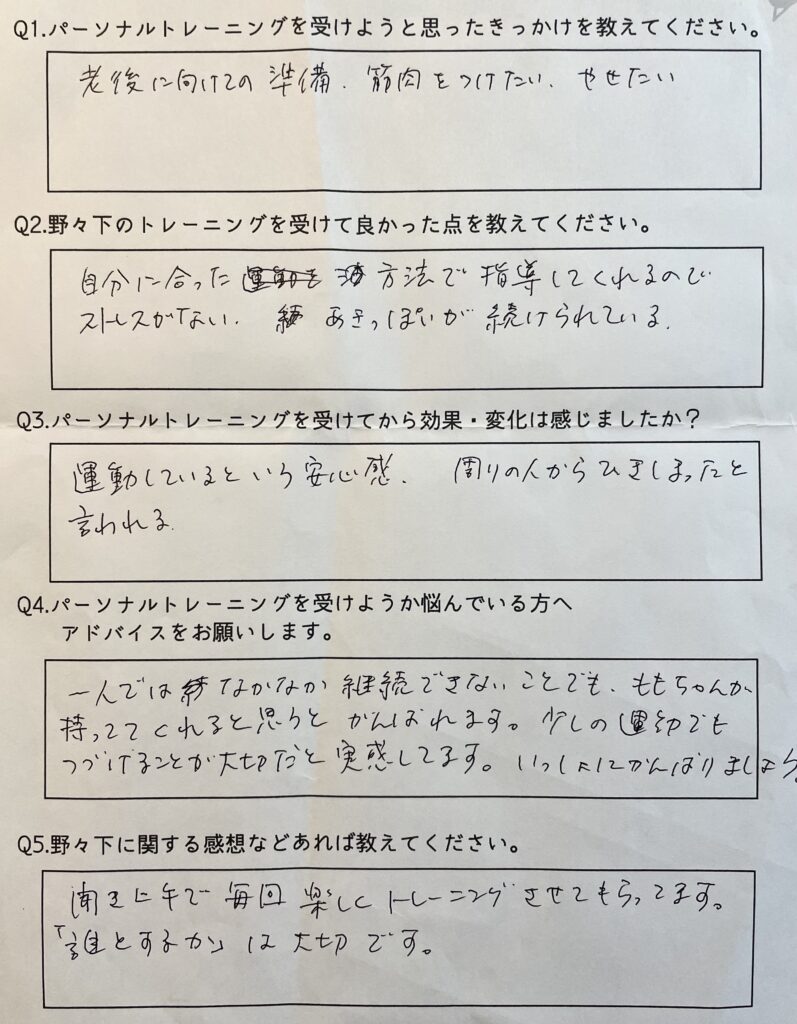 Q1.パーソナルトレーニングを受けようと思ったきっかけを教えてください。
老後に向けての準備. 筋肉をつけたい. やせたい
Q2.野々下のトレーニングを受けて良かった点を教えてください。
自分に合った 方法で 指導してくれるので
ストレスがない. あきっぽいが 続けられている.
Q3.パーソナルトレーニングを受けてから効果・変化は感じましたか？
運動しているという安心感. 周りの人からひきしまったと
言われる.
Q4.パーソナルトレーニングを受けようか悩んでいる方へ
アドバイスをお願いします。
一人では なかなか 継続できないことでも、ももちゃんが
持っててくれると思うと がんばれます。少しの運動でも
つづけることが大切だと実感してます。いっしょにがんばりましょう。
Q5.野々下に関する感想などあれば教えてください。
聞き上手で 毎回 楽しく トレーニングさせてもらってます。
「誰とするか」は 大切です。